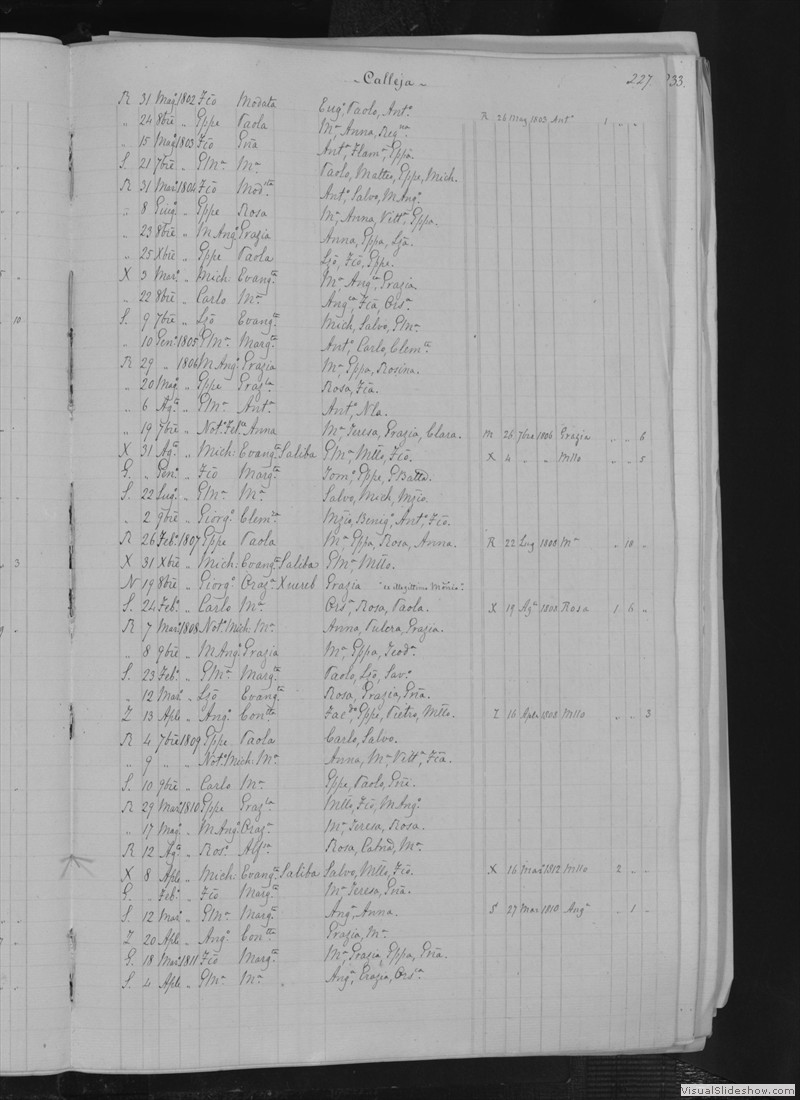 ~ Calleja ~ 227. 233.
R 31 Magº 1802 Fco Modata Eugº, Paolo, Antº.
„ 24 8bre „ Gppe Paola Mª, Anna, Regna. R 26 Mag 1803 Antº 1 „ „
„ 15 Magº 1803 Fco Gna Antª, Flamª, Gppa.
S. 21 7bre „ GMª Mª Paolo, Matteo, Gppe, Mich.
R 31 Marº 1804 Fco Modta Antº, Salvo, MAngº.
„ 8 Giugº „ Gppe Rosa Mª, Anna, Vittª, Gppa.
„ 23 8bre „ MAngº Grazia Anna, Gppa,
„ 25 Xbre „ Gppe Paola Fco, Gppe.
X 3 Marº „ Mich: Evangta Mª, Angca, Grazia.
„ 22 8bre „ Carlo Mª Angca, Fca, Orsª.
S. 9 7bre „ Evangta Mich, Salvo, GMª.
„ 10 Genº 1805 GMª Margta Antº, Carlo, Clemta
R 29 „ 1806 MAngº Grazia Mª, Gppa, Rosina.
„ 20 Magº „ Gppe Grazla Rosa, Fca.
„ 6 Agº „ GMª Antª Antº, Nla.
„ 19 7bre „ Notº Felce Anna Mª, Teresa, Grazia, Clara. M 26 7bre 1806 Grazia „ „ 6
X 31 Agº „ Mich: Evangta Saliba GMª, Mllo, Fco. X 4 „ „ Mllo „ „ 5
G. „ Genº „ Fco Margta Tomº, Gppe, GBatta.
S. 22 Lugº „ GMª Mª Salvo, Mich, Nzio.
„ 2 9bre „ Giorgº Clemta Nzia, Benigº, Antº, Fco.
R 26 Febº 1807 Gppe Paola Mª, Gppa, Rosa, Anna. R 22 Lug 1808 Mª „ 10 „
X 31 Xbre „ Mich: Evangta Saliba GMª, Mllo.
N 19 8bre „ Giorgº Grazª Xuereb Grazia
S. 24 Febº „ Carlo Mª Orsª, Rosa, Paola. X 19 Agº 1808 Rosa 1 6 „
R 7 Marº 1808 Notº Mich: Mª Anna, Pulcra, Grazia.
„ 8 9bre „ MAngº Grazia Mª, Gppa, Teodª.
S. 23 Febº „ GMª Margta Paolo, Savº.
„ 12 Marº „ Evangta Rosa, Grazia, Gna.
Z 13 Aple „ Angº Contta Gppe, Pietro, Mllo. Z 16 Aple 1808 Mllo „ „ 3
R 4 7bre 1809 Gppe Paola Carlo, Salvo.
„ 9 „ „ Notº Mich: Mª Anna, Mª, Vittª, Fca.
S. 10 9bre „ Carlo Mª Gppe, Paolo, Gni.
R 29 Marº 1810 Gppe Grazla Mllo, Fco, MAngº.
„ 17 Magº „ MAngº Grazª Mª, Teresa, Rosa.
R 12 Agº „ Rosº Alfsa Rosa, Catna, Mª.
X 8 Aple „ Mich: Evangta Saliba Salvo, Mllo, Fco. X 16 Marº 1812 Mllo 2 „ „
G. „ Febº „ Fco Margta Mª, Teresa, Gna.
S. 12 Marº „ GMª Margta Angº, Anna. S 27 Mar 1810 Angº „ 1 „
Z 20 Aple „ Angº Contta Grazia, Mª.
G. 18 Marº 1811 Fco Margta Mª, Grazia, Gppa, Gna.
S. 4 Aple „ GMª Mª „ Angª, Grazia, Orsª.
VisualSlideshow.com